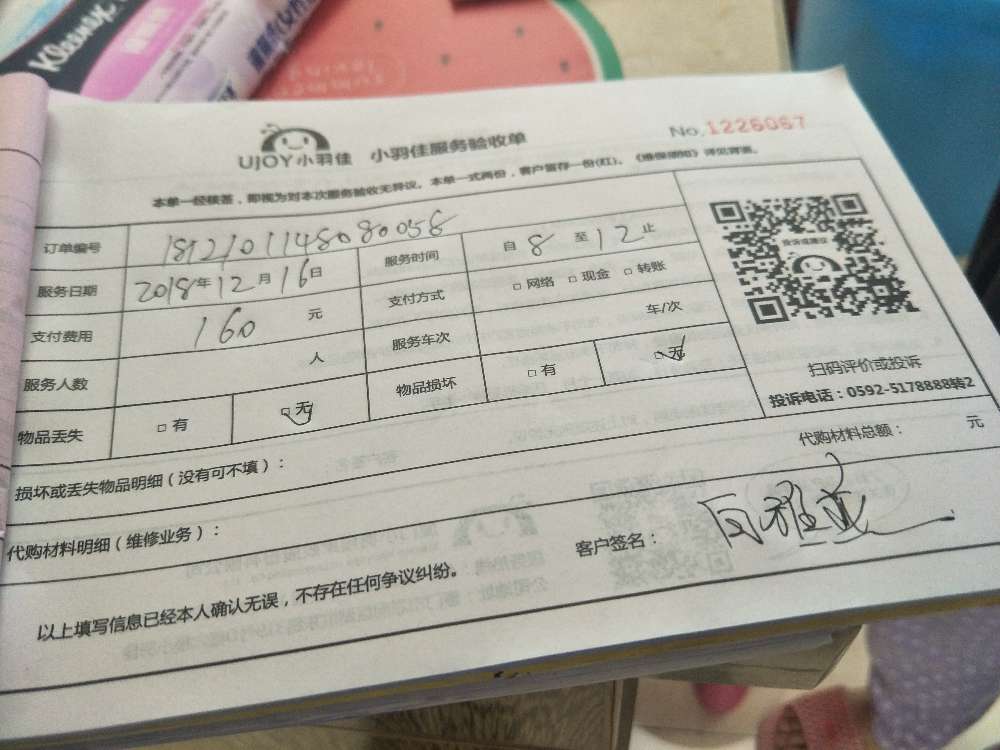 Kleenex
UJOY小羽佳 小羽佳服务验收单 No.1226067
本单一经核签，即视为对本次服务验收无异议。本单一式两份，客户留存一份(红)。《维保须知》详见背面。
订单编号 1812101148080058 服务时间 自 8 至 12 止
服务日期 2018年12月16日 支付方式 □ 网络 □ 现金 □ 转账
支付费用 160 元 服务车次 车/次
服务人数 人 物品损坏 □ 有 □ 无
物品丢失 □ 有 □ 无
投诉或建议
扫码评价或投诉
投诉电话：0592-5178888转2
损坏或丢失物品明细（没有可不填）：
代购材料明细（维修业务）： 代购材料总额： 元
以上填写信息已经本人确认无误，不存在任何争议纠纷。 客户签名：